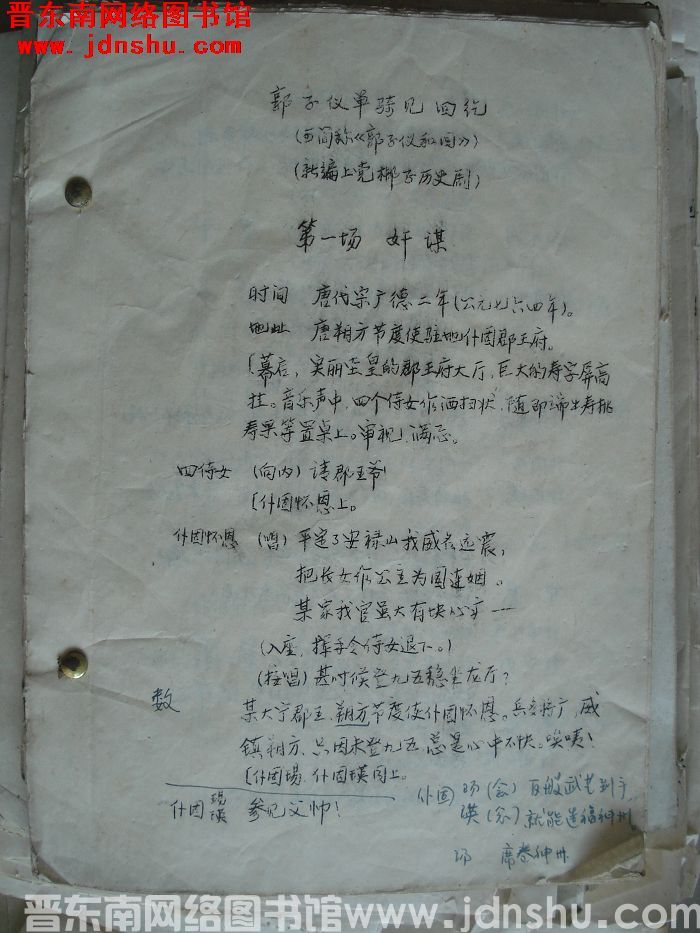 晋东南网络图书馆
www.jdnshu.com
郭子仪单骑见回纥
(可简称《郭子仪和回》)
(新编上党梆子历史剧)
第一场 奸谋
时间 唐代宗广德二年(公元七六四年)。
地址 唐朔方节度使驻地仆固郡王府。
〔幕启,富丽堂皇的郡王府大厅,巨大的寿字屏高
挂。音乐声中,四个侍女作洒扫状,随即端出寿桃
寿果等置桌上。审视,满意。
四侍女 (向内) 请郡王爷
〔仆固怀恩上。
仆固怀恩 (唱) 平定了安禄山我威名远震,
把长女作公主为国连姻。
某家我官虽大有块心
(入座,挥手令侍女退下。)
(接唱) 甚时候登九五稳坐龙厅?
数 某大宁郡王、朔方节度使仆固怀恩。兵多将广,威
镇朔方,只因未登九五,总是心中不快。唉咦!
〔仆固玚、仆固瑛同上。
仆固 玚 (念) 百般武艺到手
仆固 玚 瑛 参见父帅!
瑛 (念) 就能造福神州
玚 席卷神州
晋东南网络图书馆 www.jdnshu.com